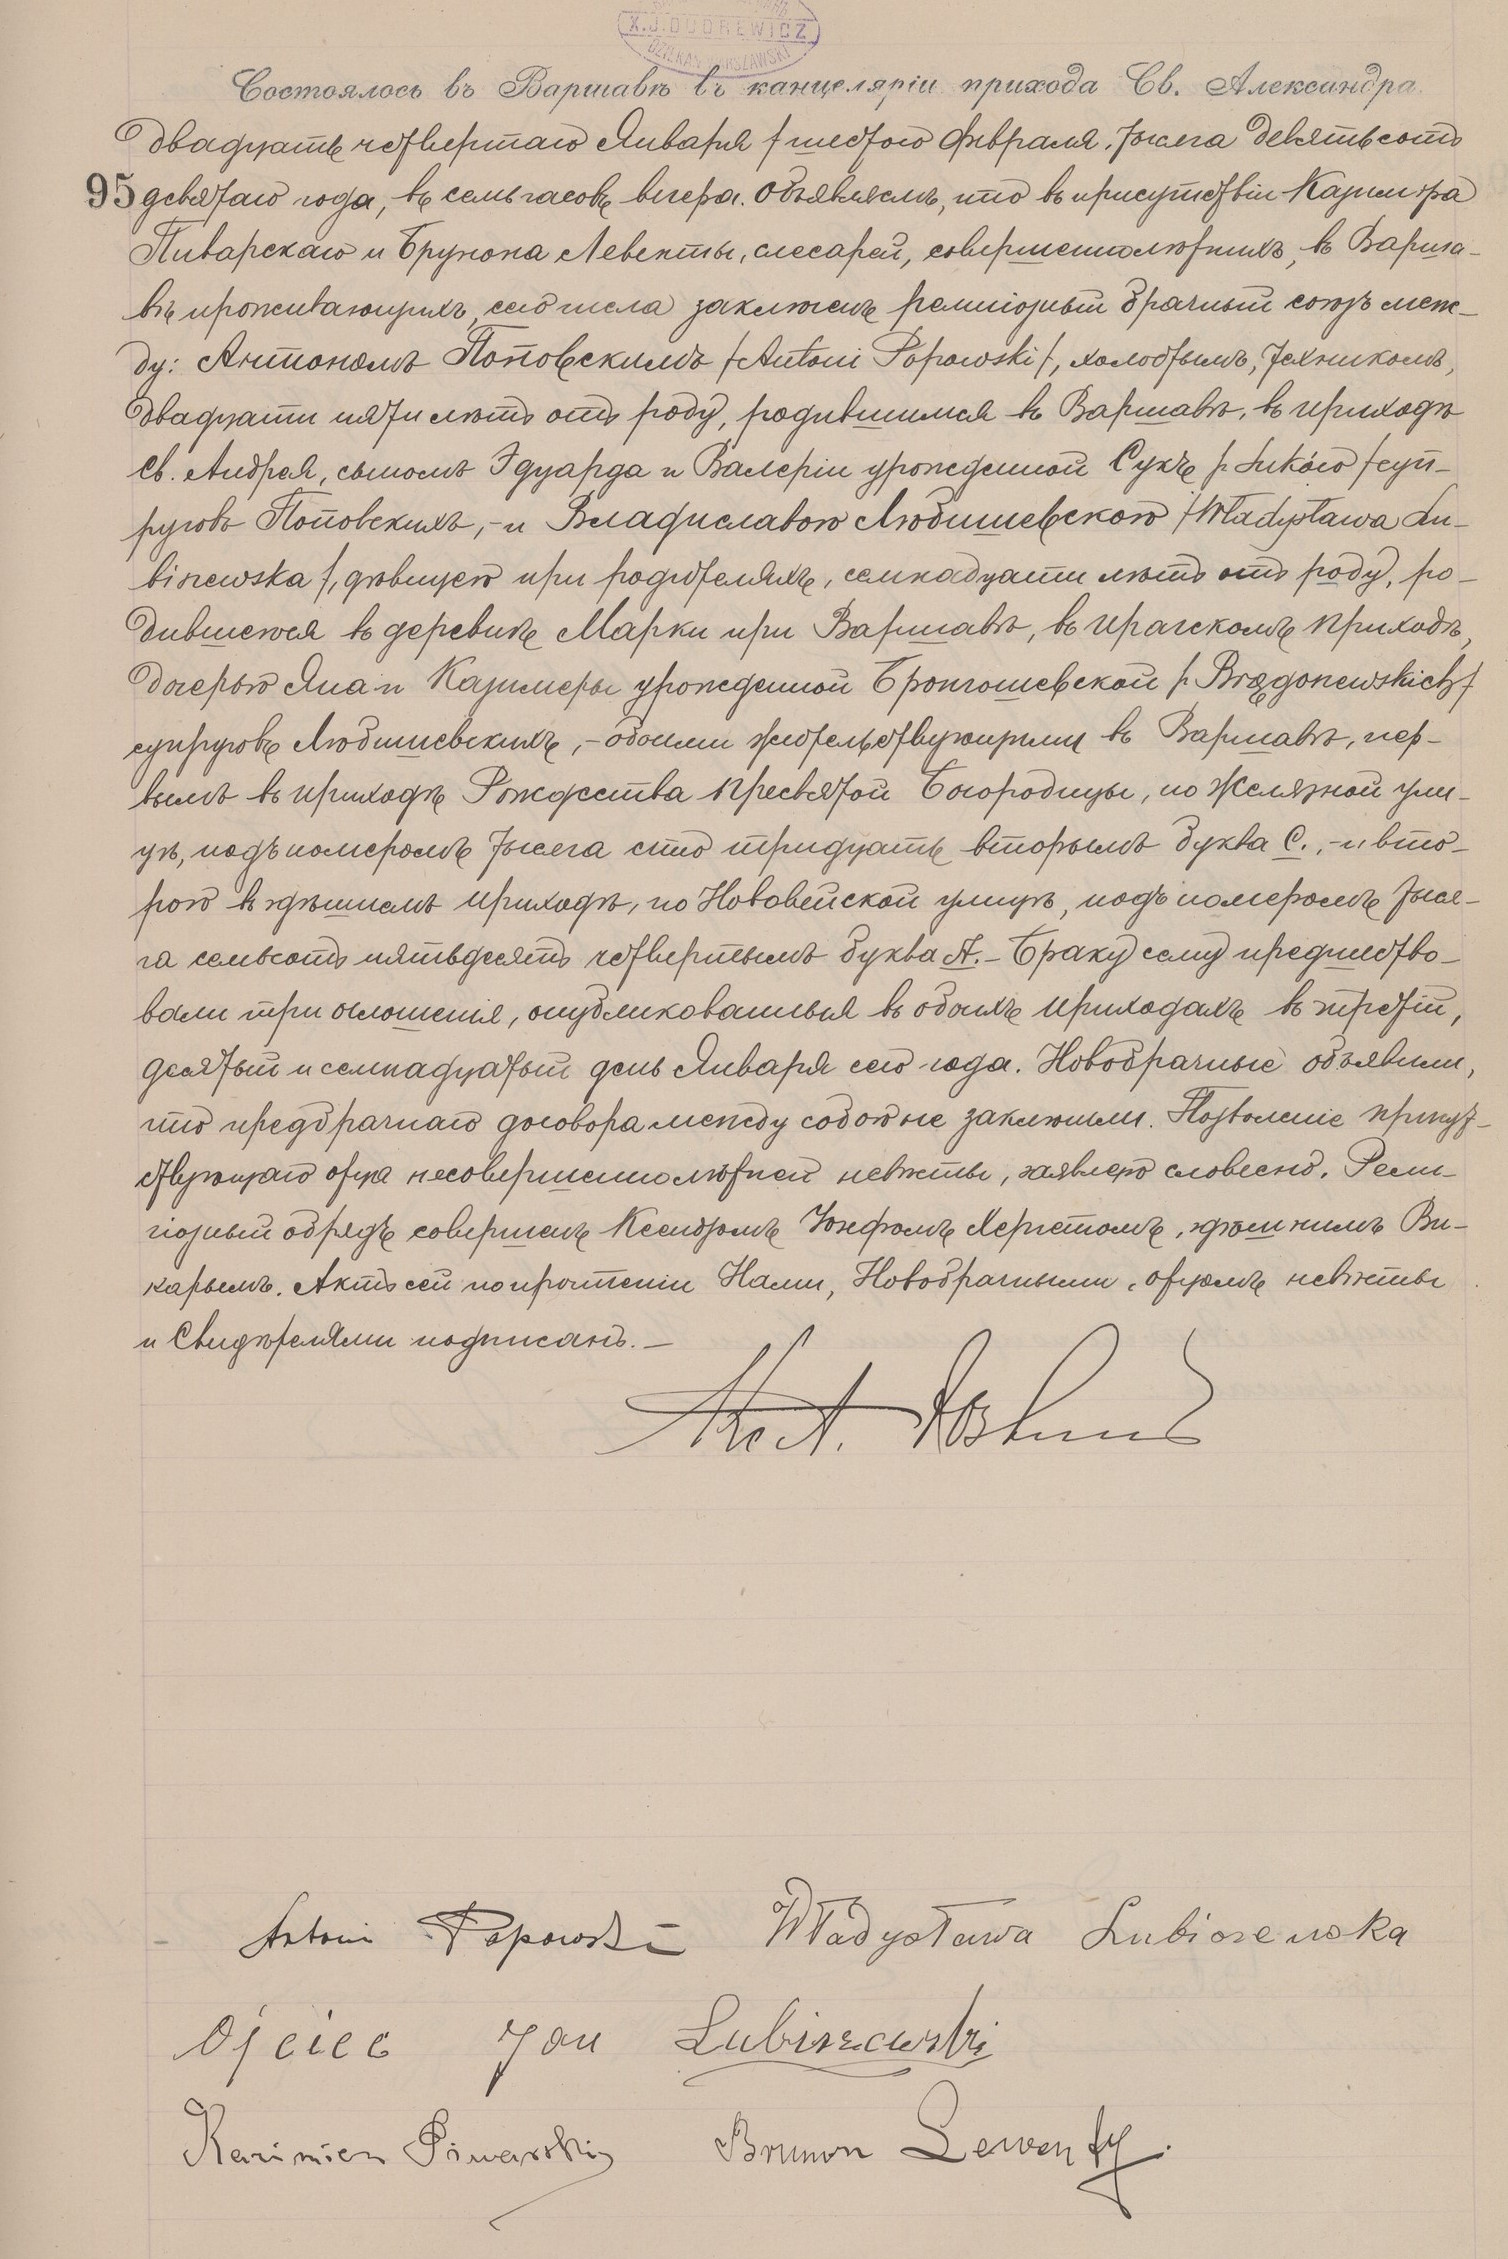 X. J. DUDREWICZ
DZIEKAN WARSZAWSKI
Состоялось въ Варшавѣ въ канцеляріи прихода Св. Александра
двадцать четвертаго Января /шестого Февраля/ тысяча девятьсотъ
95 девятаго года, въ семь часовъ вечера. Объявляемъ, что въ присутствіи Казиміра
Пиварскаго и Брунона Левенты, слесарей, совершеннолѣтнихъ, въ Варша-
вѣ проживающихъ, сего числа заключенъ религіозный брачный союзъ меж-
ду: Антономъ Поповскимъ /Antoni Popowski/, холостымъ, техникомъ,
двадцати пяти лѣтъ отъ роду, родившимся въ Варшавѣ, въ приходѣ
Св. Андрея, сыномъ Эдуарда и Валеріи урожденной Сукъ /z Suków/ суп-
руговъ Поповскихъ, - и Владиславою Любишевскою /Władysława Lu-
biszewska/, дѣвицею при родителяхъ, семнадцати лѣтъ отъ роду, ро-
дившеюся въ деревнѣ Марки при Варшавѣ, въ Пражскомъ приходѣ,
дочерью Яна и Казимеры урожденной /z
супруговъ Любишевскихъ, - обоими жительствующими въ Варшавѣ, пер-
вымъ въ приходѣ Рождества Пресвятой Богородицы, по Желязной ули-
цѣ, подъ номеромъ тысяча сто тридцать вторымъ буква С., - и вто-
рою въ здѣшнемъ приходѣ, по Нововейской улицѣ, подъ номеромъ тыся-
ча семьсотъ пятьдесятъ четвертымъ буква А. - Браку сему предшество-
вали три оглашенія, опубликованныя въ обоихъ приходахъ въ третій,
десятый и семнадцатый день Января сего года. Новобрачные объявили,
что предбрачнаго договора между собою не заключили. Позволеніе присут-
ствующаго отца несовершеннолѣтней невѣсты, заявлено словесно. Рели-
гіозный обрядъ совершенъ Ксендзомъ Юзефомъ здѣшнимъ Ви-
карымъ. Актъ сей по прочтеніи Нами, Новобрачными, отцомъ невѣсты
и Свидѣтелями подписанъ. -
Antoni Popowski Władysława Lubiszewska
Ojciec Jan Lubiszewski
Kazimierz Piwarski Brunon Lewenty.